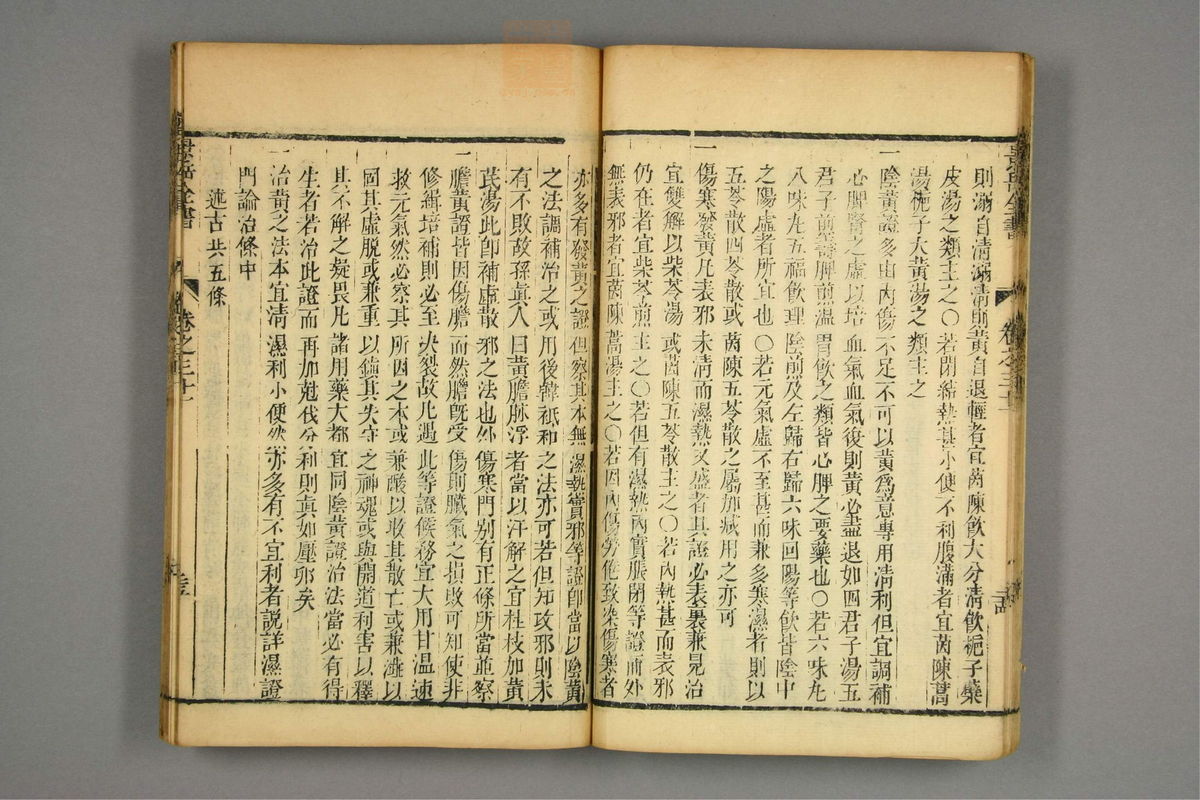 則溺自清溺清而黃自退輕者宜茵陳飲大分清飲梔子蘗
皮湯之類主之○若閉結熱甚小便不利腹滿者宜茵陳蒿
湯梔子大黃湯之類主之
一陰黃證多由內傷不足不可以黃為意專用清利但宜調補
心脾腎之虛以培血氣血氣復則黃必盡退如四君子湯五
君子煎壽脾煎溫胃飲之類皆心脾之要藥也○若六味丸
八味丸五福飲理陰煎及左歸右歸六味回陽等飲皆陰中
之陽虛者所宜也○若元氣虛不至甚而兼多寒濕者則以
五苓散四苓散或茵陳五苓散之屬加減用之亦可
一傷寒發黃凡表邪未清而濕熱又盛者其證必表裏兼見治
宜雙解以柴苓湯或茵陳五苓散主之○若內熱甚而表邪
仍在者宜柴苓煎主之○若但有濕熱內實脹閉等證而外
無表邪者宜茵陳蒿湯主之○若因內傷勞倦致染傷寒者
亦多有發黃之證但察其本無濕熱實邪等證即當以陰黃
之法調補治之或用後韓祗和之法亦可若但知攻邪則未
有不敗故孫真人曰黃膽脉浮者當以汗解之宜桂枝加黃
芪湯此即補虛散邪之法也外傷寒門別有正條所當並察
一膽黃證皆因傷膽而然膽既受傷則臟氣之損敗可知使非
修緝培補則必至决裂故凡遇此等證候務宜大用甘溫速
救元氣然必察其所因之本或兼酸以收其散亡或兼澀以
固其虛脫或兼重以鎮其失守之神魂或與開道利害以釋
其不解之疑畏凡諸用藥大都宜同陰黃證治法當必有得
生者若治此證而再加尅伐分利則真如壓卵矣
一治黃之法本宜清濕利小便然亦多有不宜利者說詳濕證
門論治條中
述古共五條
景岳全書
卷之三十一